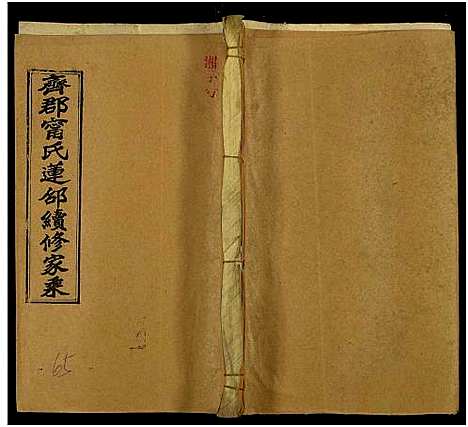 齊郡甯氏蓮邵續修家乘
湘
65